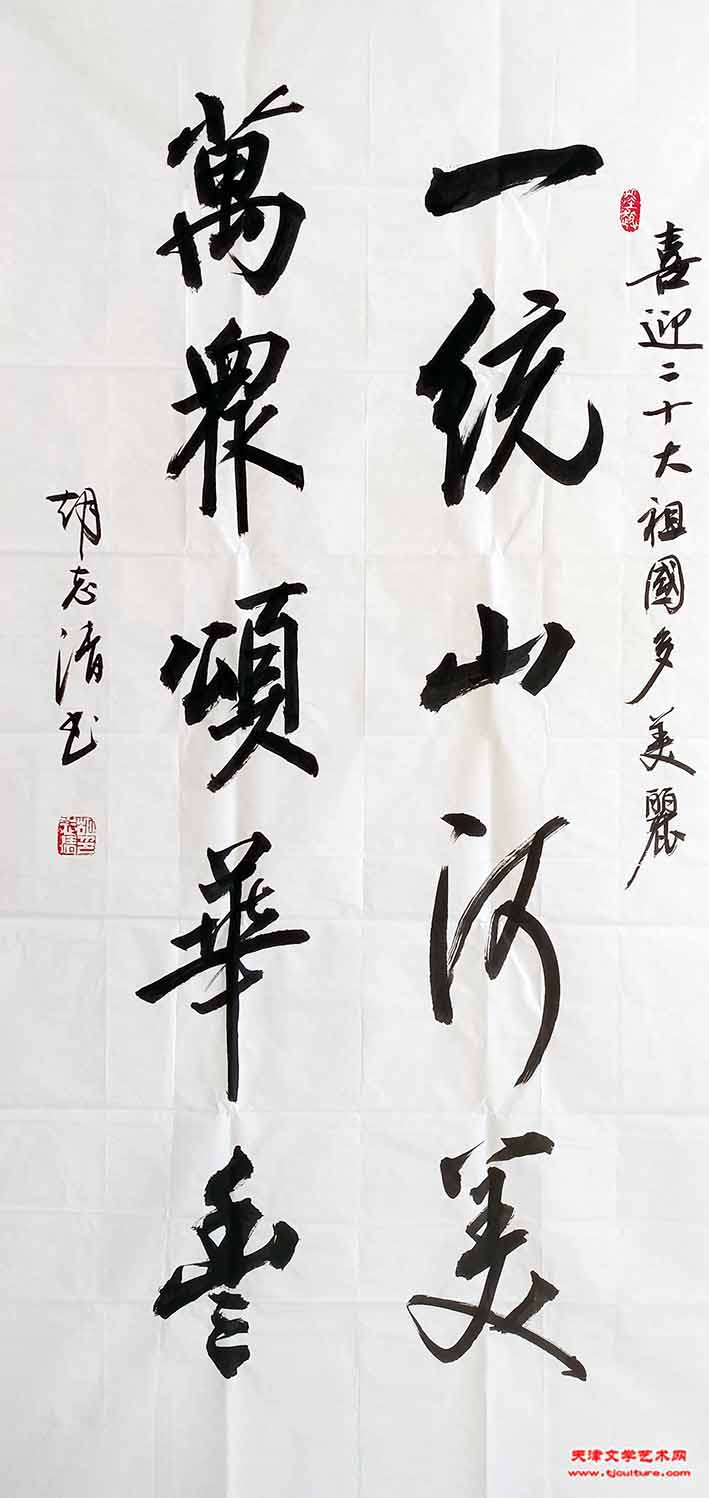 喜迎二十大祖國多美麗
一统山河美
萬眾頌華豐
胡志清书
天津文学艺术网
www.tjculture.com